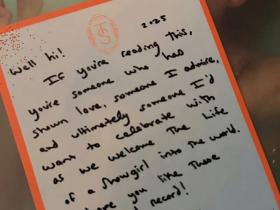 2025
Well hi!
If you're reading this,
you're someone who has
shown love, someone I admire,
and ultimately someone I'd
want to celebrate with
as we welcome The Life
of a Showgirl into the world.
you like these
record!